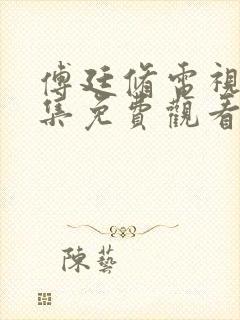 傅廷脩電視
集免費觀看
陳藝